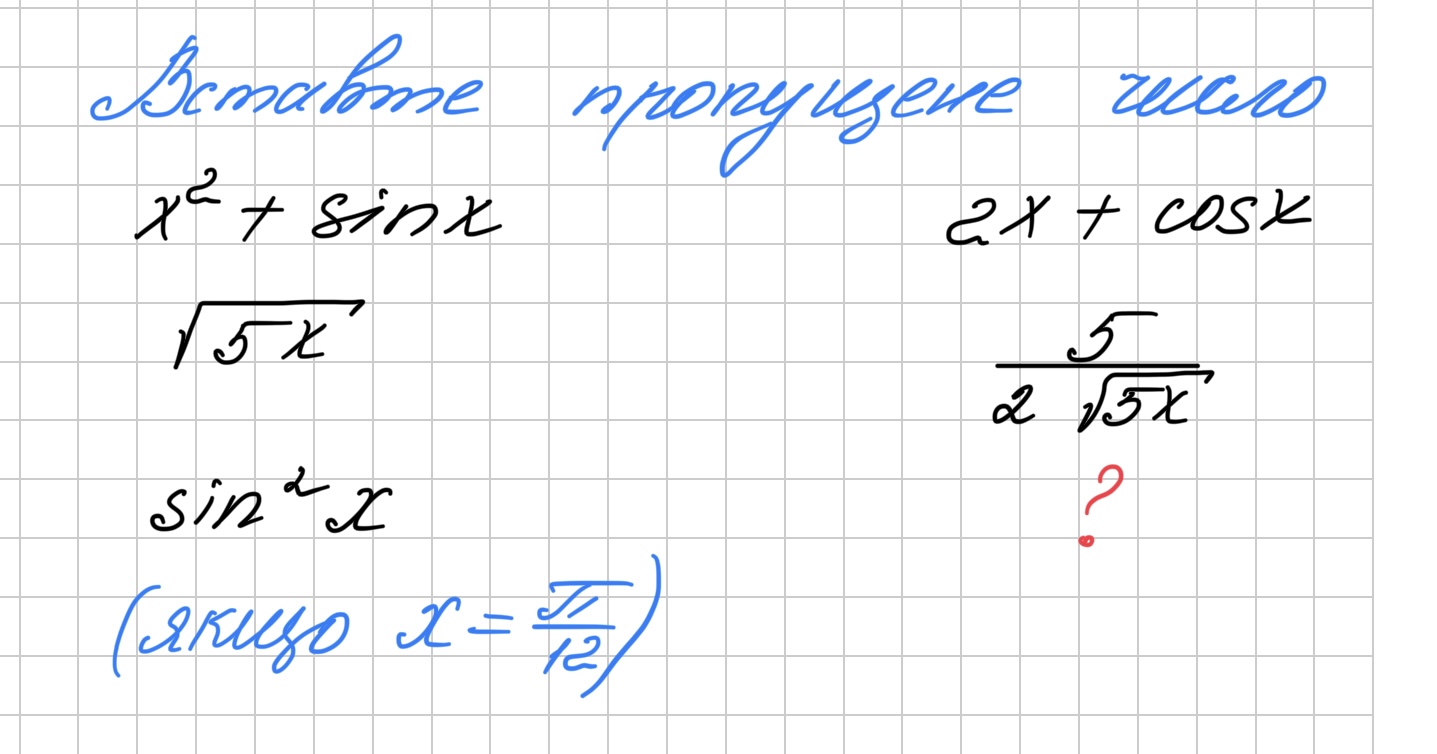 Вставте пропущене число
x² + sinx 2x + cosx
√5x 5/(2√5x)
sin²x ?
(якщо x = π/12)